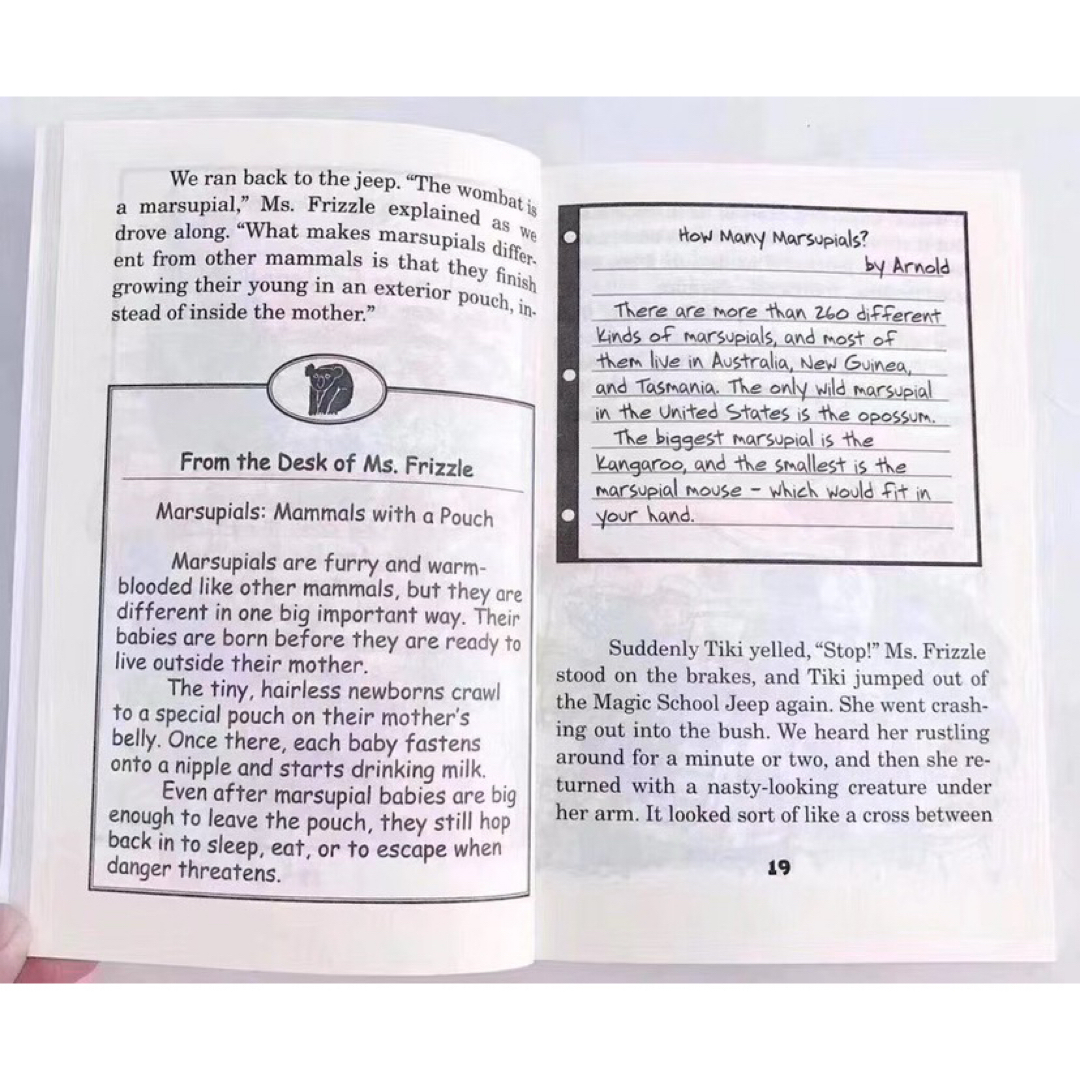 We ran back to the jeep. “The wombat is
a marsupial,” Ms. Frizzle explained as we
drove along. “What makes marsupials differ-
ent from other mammals is that they finish
growing their young in an exterior pouch, in-
stead of inside the mother.”
From the Desk of Ms. Frizzle
Marsupials: Mammals with a Pouch
Marsupials are furry and warm-
blooded like other mammals, but they are
different in one big important way. Their
babies are born before they are ready to
live outside their mother.
The tiny, hairless newborns crawl
to a special pouch on their mother's
belly. Once there, each baby fastens
onto a nipple and starts drinking milk.
Even after marsupial babies are big
enough to leave the pouch, they still hop
back in to sleep, eat, or to escape when
danger threatens.
How Many Marsupials?
by Arnold
There are more than 260 different
kinds of marsupials, and most of
them live in Australia, New Guinea,
and Tasmania. The only wild marsupial
in the United States is the opossum.
The biggest marsupial is the
Kangaroo, and the smallest is the
marsupial mouse – which would fit in
your hand.
Suddenly Tiki yelled, “Stop!” Ms. Frizzle
stood on the brakes, and Tiki jumped out of
the Magic School Jeep again. She went crash-
ing out into the bush. We heard her rustling
around for a minute or two, and then she re-
turned with a nasty-looking creature under
her arm. It looked sort of like a cross between
19